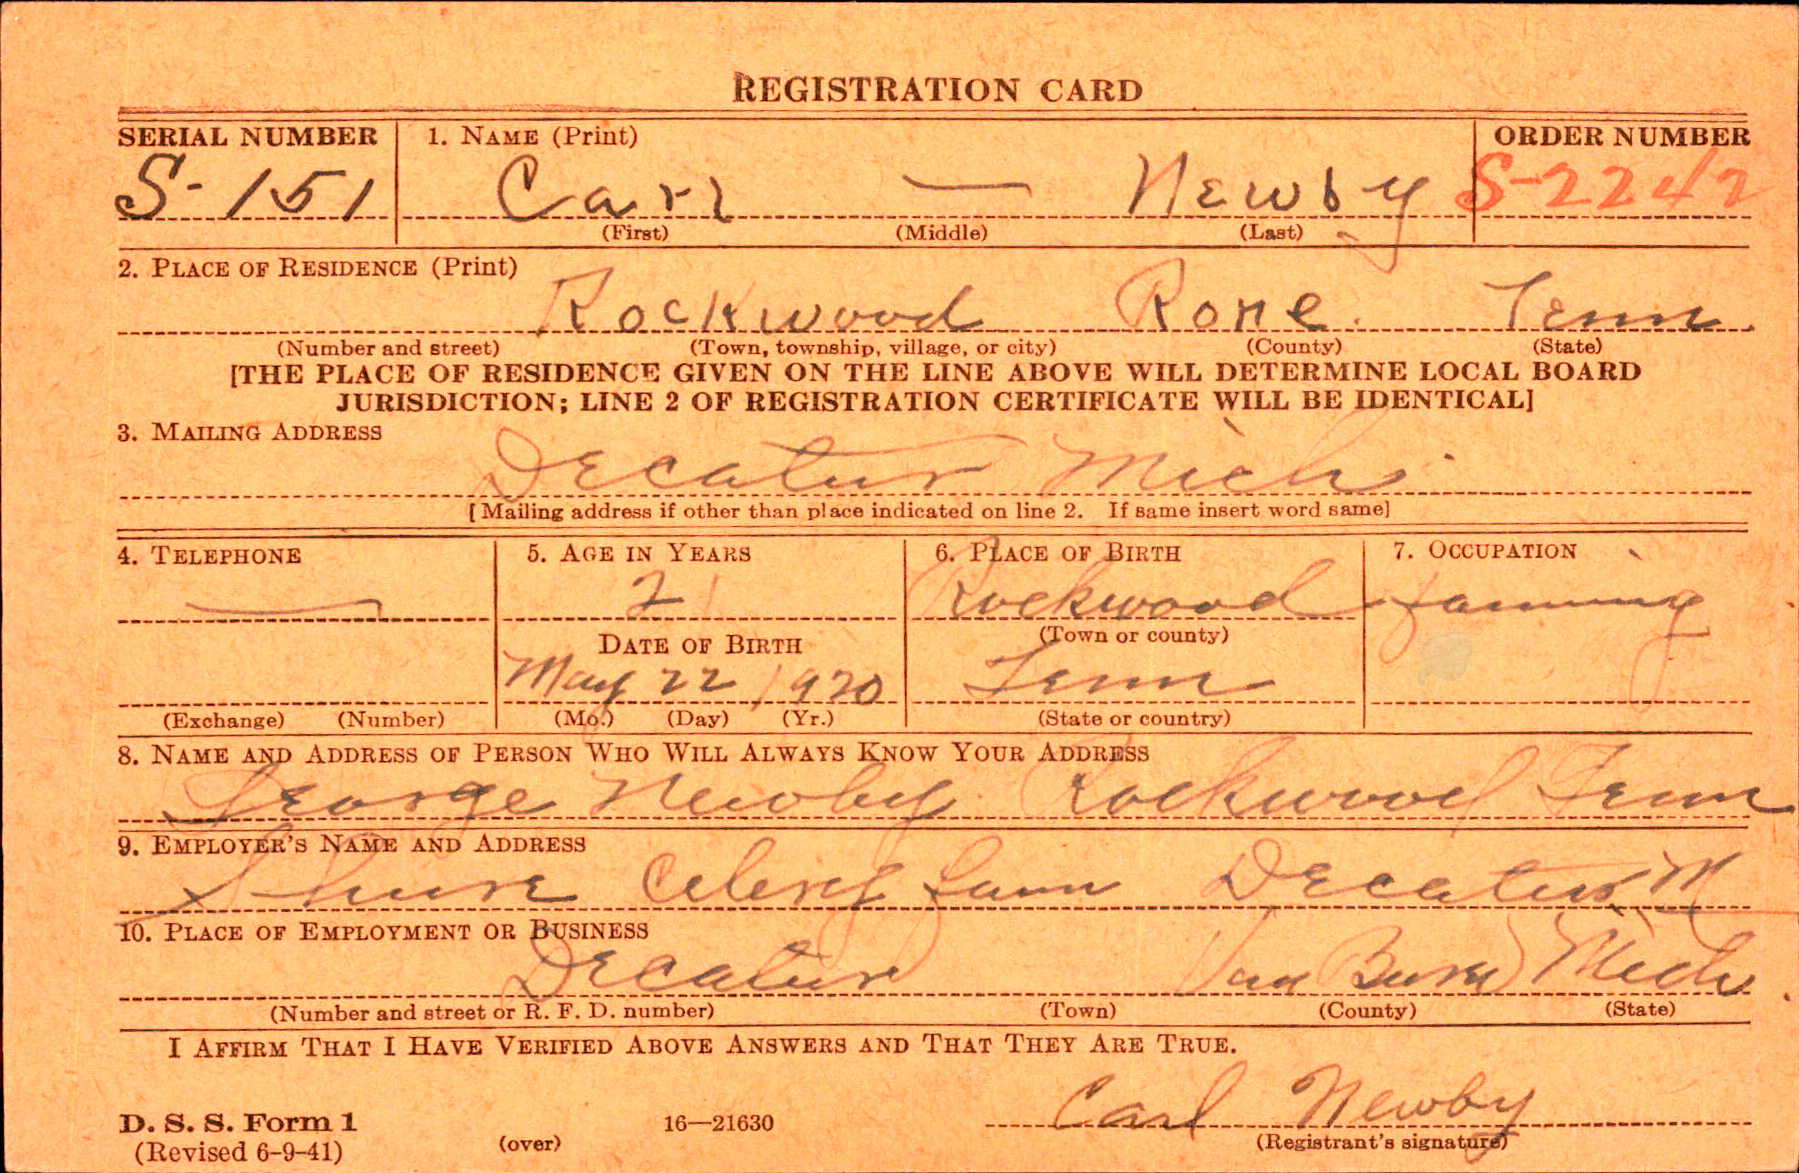 REGISTRATION CARD
SERIAL NUMBER 1. NAME (Print) ORDER NUMBER
S-151 Carl — Newby S-2242
(First) (Middle) (Last)
2. PLACE OF RESIDENCE (Print)
Rockwood Rone. Tenn.
(Number and street) (Town, township, village, or city) (County) (State)
[THE PLACE OF RESIDENCE GIVEN ON THE LINE ABOVE WILL DETERMINE LOCAL BOARD
JURISDICTION; LINE 2 OF REGISTRATION CERTIFICATE WILL BE IDENTICAL]
3. MAILING ADDRESS
Decatur Mich.
[Mailing address if other than place indicated on line 2. If same insert word same]
4. TELEPHONE 5. AGE IN YEARS 6. PLACE OF BIRTH 7. OCCUPATION
— 21 Rockwood farming
DATE OF BIRTH (Town or county)
May 22 1920 Tenn
(Exchange) (Number) (Mo.) (Day) (Yr.) (State or country)
8. NAME AND ADDRESS OF PERSON WHO WILL ALWAYS KNOW YOUR ADDRESS
George Newby Rockwood Tenn
9. EMPLOYER'S NAME AND ADDRESS
Celery farm Decatur M
10. PLACE OF EMPLOYMENT OR BUSINESS
Decatur Van Buren Mich.
(Number and street or R. F. D. number) (Town) (County) (State)
I AFFIRM THAT I HAVE VERIFIED ABOVE ANSWERS AND THAT THEY ARE TRUE.
Carl Newby
D. S. S. Form 1 16—21630
(Revised 6-9-41) (over) (Registrant's signature)